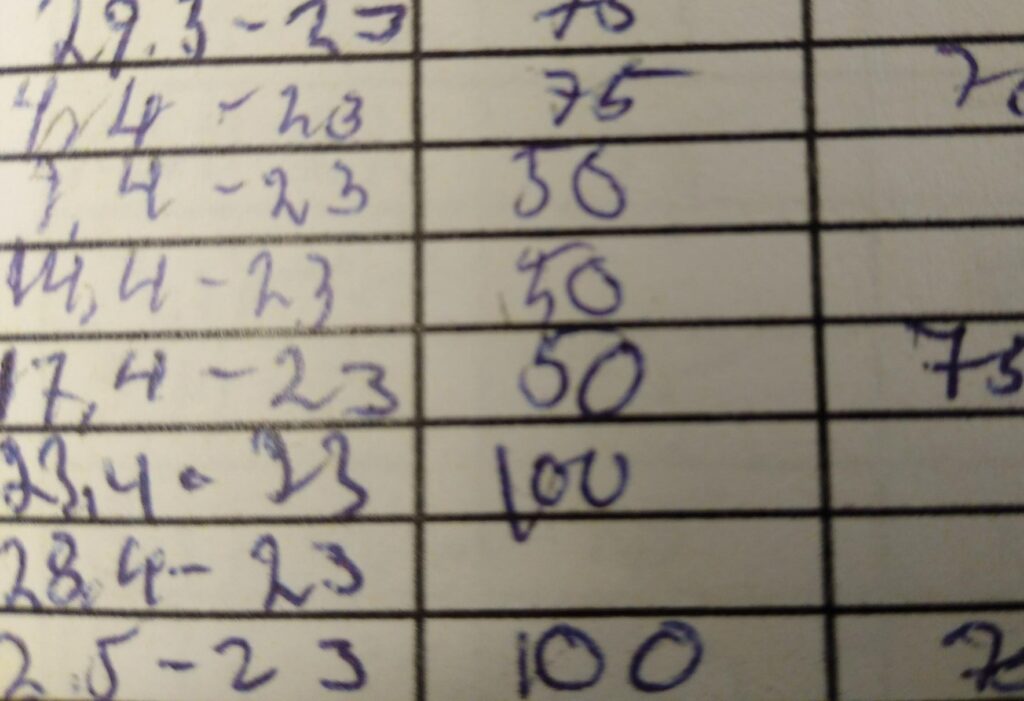 29.3-23 75
4,4-23 75
7,4-23 50
14,4-23 50
17,4-23 50 75
23,4-23 100
28,4-23
2.5-23 100